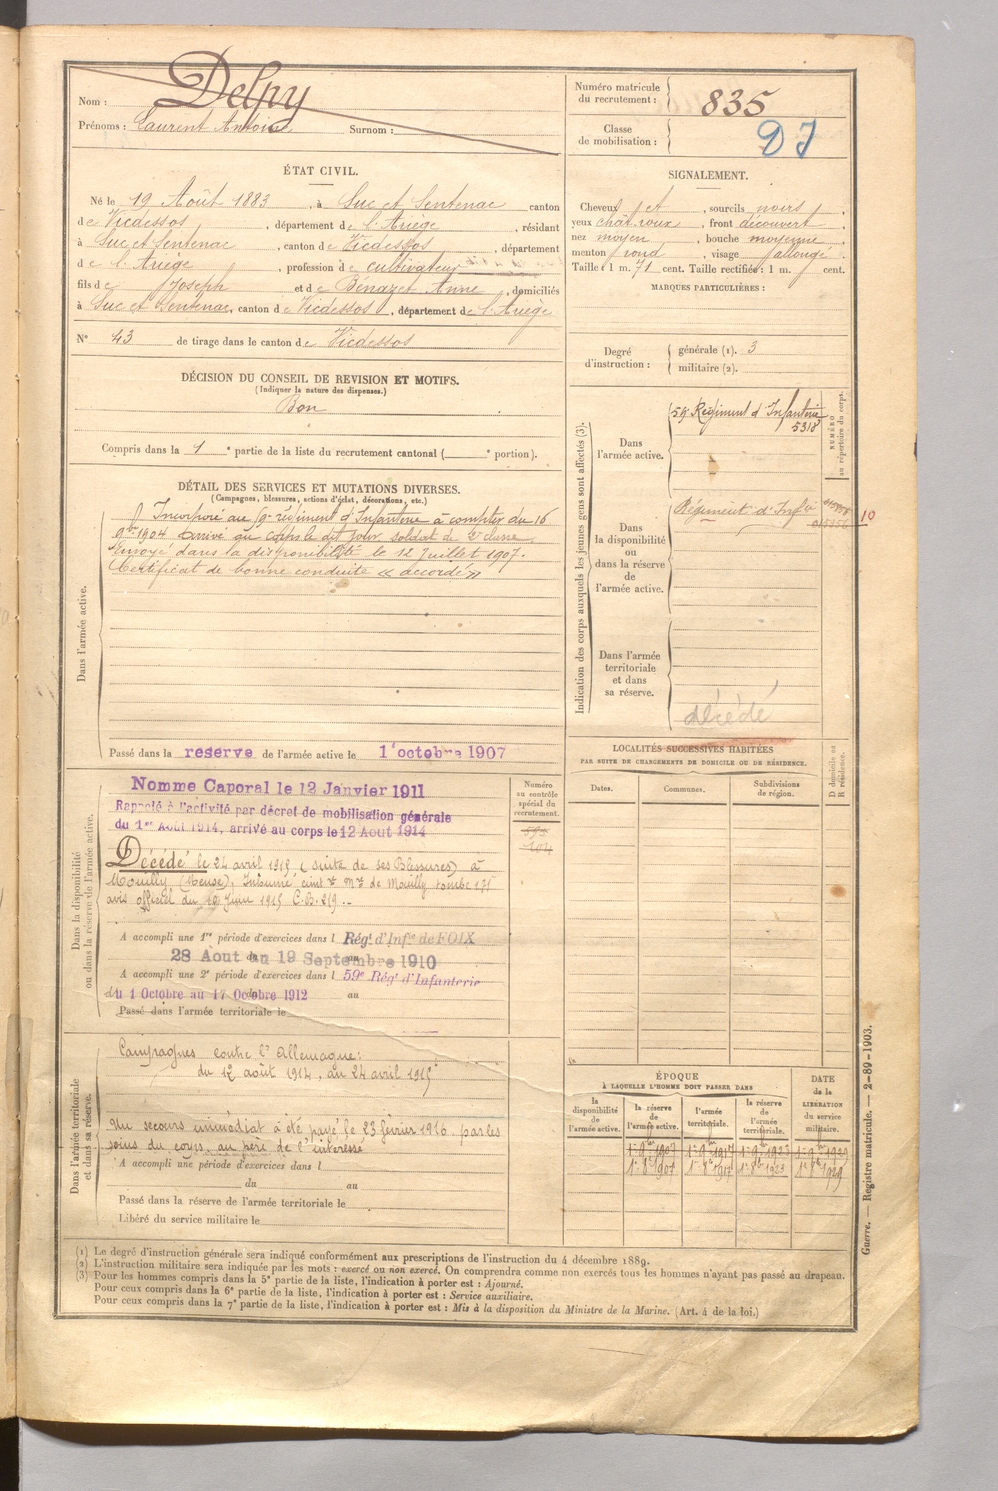 Nom : Delpy
Prénoms : Laurent Antoine Surnom :
Numéro matricule du recrutement : 835
Classe de mobilisation : DJ
ÉTAT CIVIL.
Né le 19 Août 1883, à Suc et Sentenac canton
de Vicdessos, département de l'Ariège, résidant
à Suc et Sentenac, canton de Vicdessos, département
de l'Ariège, profession de cultivateur
fils de Joseph et de Benazet Anne, domiciliés
à Suc et Sentenac, canton de Vicdessos, département de l'Ariège
N° 43 de tirage dans le canton de Vicdessos
SIGNALEMENT.
Cheveux et, sourcils noirs,
yeux chât. roux, front découvert,
nez moyen, bouche moyenne,
menton rond, visage allongé.
Taille : 1 m. 71 cent. Taille rectifiée : 1 m. cent.
MARQUES PARTICULIÈRES :
Degré d'instruction : générale (1). 3
militaire (2).
DÉCISION DU CONSEIL DE REVISION ET MOTIFS.
(Indiquer la nature des dispenses.)
Bon
Compris dans la 1e partie de la liste du recrutement cantonal ( e portion).
DÉTAIL DES SERVICES ET MUTATIONS DIVERSES.
(Campagnes, blessures, actions d'éclat, décorations, etc.)
Dans l'armée active.
Incorporé au 59e régiment d'Infanterie à compter du 16
9bre 1904 Arrivé au corps le dit jour, soldat de 2e classe
Envoyé dans la disponibilité le 12 Juillet 1907.
Certificat de bonne conduite « accordé »
Passé dans la réserve de l'armée active le 1 octobre 1907
Indication des corps auxquels les jeunes gens sont affectés (3).
NUMÉRO au répertoire du corps.
Dans l'armée active.
59e Régiment d'Infanterie
5318
Dans la disponibilité ou dans la réserve de l'armée active.
Régiment d'Infie
10
Dans l'armée territoriale et dans sa réserve.
décédé
Dans la disponibilité ou dans la réserve de l'armée active.
Nomme Caporal le 12 Janvier 1911
Rappelé à l'activité par décret de mobilisation générale
du 1er Août 1914, arrivé au corps le 12 Aout 1914
Décédé le 24 avril 1915 (suite de ses Blessures) à
Mouilly (Meuse), Inhumé cimre mre de Mouilly tombe 171
avis officiel du 19 juin 1915 C.B. 219
A accompli une 1re période d'exercices dans l Régt d'Infie de FOIX
28 Aout du 19 Septembre 1910 au
A accompli une 2e période d'exercices dans l 59e Régt d'Infanterie
du 1 Octobre au 17 Octobre 1912 au
Passé dans l'armée territoriale le
Numéro au contrôle spécial du recrutement.
595
104
LOCALITÉS SUCCESSIVES HABITÉES
PAR SUITE DE CHANGEMENTS DE DOMICILE OU DE RÉSIDENCE.
Dates. Communes. Subdivisions de région. D domicile ou R résidence.
Dans l'armée territoriale et dans sa réserve.
Campagnes contre l'Allemagne :
du 12 août 1914, au 24 avril 1915
Un secours immédiat a été payé le 23 février 1916 par les
soins du corps, au père de l'intéressé
A accompli une période d'exercices dans l
du au
Passé dans la réserve de l'armée territoriale le
Libéré du service militaire le
ÉPOQUE
À LAQUELLE L'HOMME DOIT PASSER DANS
la disponibilité de l'armée active. la réserve de l'armée active. l'armée territoriale. la réserve de l'armée territoriale.
DATE de la LIBÉRATION du service militaire.
1er 9bre 1907 1er 9bre 1917 1er 9bre 1923 1er 9bre 1929
1er 8bre 1907 1er 8bre 1917 1er 8bre 1923 1er 8bre 1929
(1) Le degré d'instruction générale sera indiqué conformément aux prescriptions de l'instruction du 4 décembre 1889.
(2) L'instruction militaire sera indiquée par les mots : exercé ou non exercé. On comprendra comme non exercés tous les hommes n'ayant pas passé au drapeau.
(3) Pour les hommes compris dans la 5e partie de la liste, l'indication à porter est : Ajourné.
Pour ceux compris dans la 6e partie de la liste, l'indication à porter est : Service auxiliaire.
Pour ceux compris dans la 7e partie de la liste, l'indication à porter est : Mis à la disposition du Ministre de la Marine. (Art. 4 de la loi.)
Guerre. — Registre matricule. — 2-89-1903.